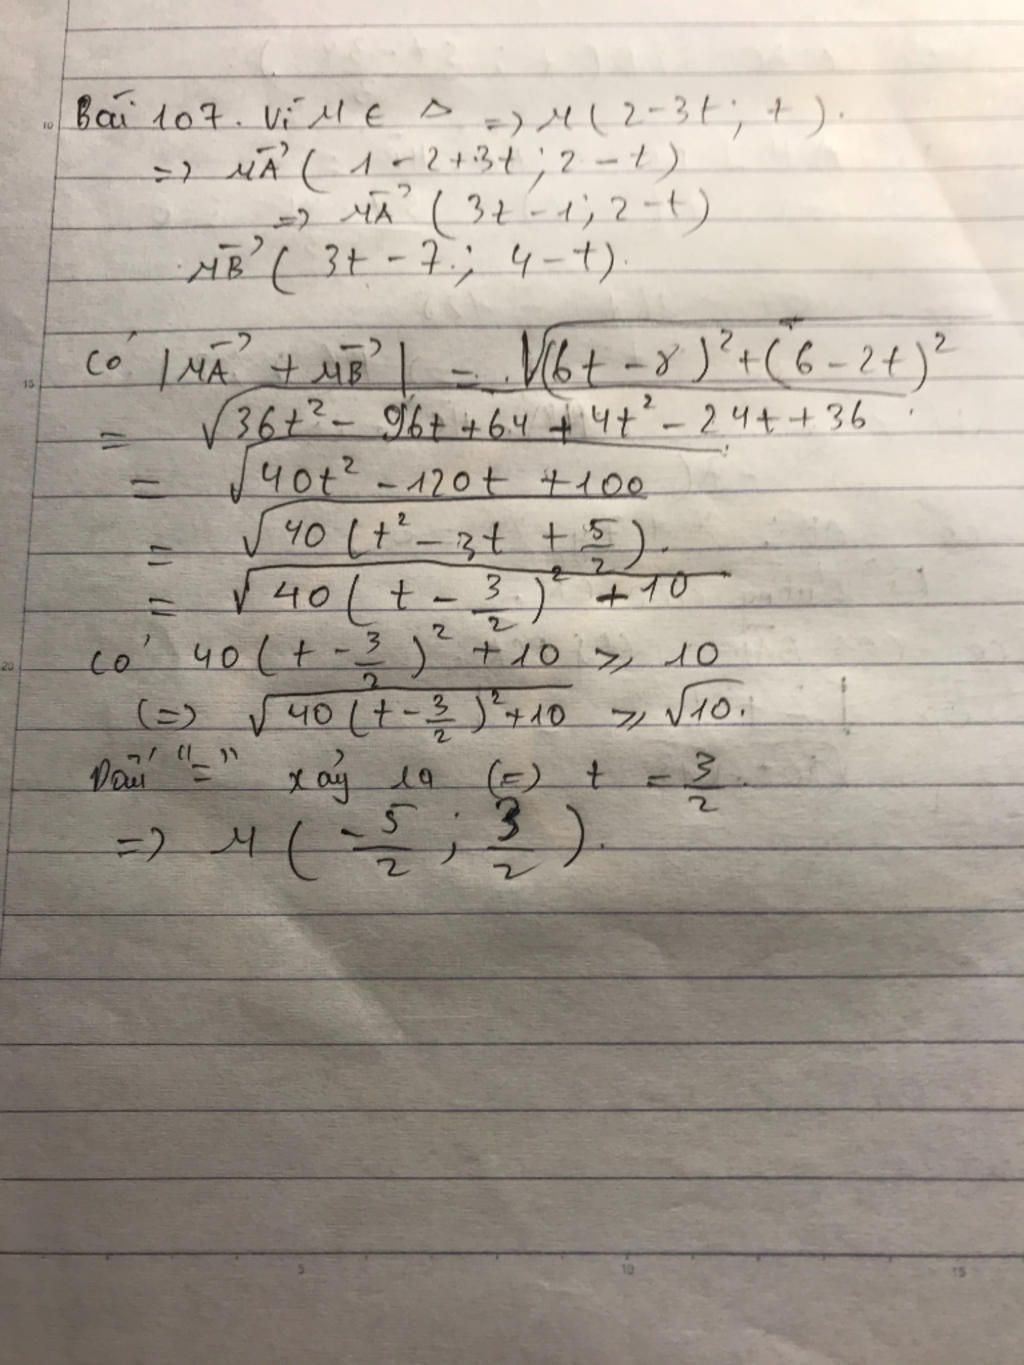 Bài 107. Vì M ∈ Δ => M ( 2 - 3t ; t ).
=> MA→ ( 1 - 2 + 3t ; 2 - t )
=> MA→ ( 3t - 1 ; 2 - t )
MB→ ( 3t - 7 ; 4 - t ).
Có | MA→ + MB→ | = √((6t - 8)² + (6 - 2t)²)
= √(36t² - 96t + 64 + 4t² - 24t + 36)
= √(40t² - 120t + 100)
= √(40 ( t² - 3t + 5/2 )).
= √(40 ( t - 3/2 )² + 10)
Có 40 ( t - 3/2 )² + 10 ≥ 10
(=) √(40 ( t - 3/2 )² + 10) ≥ √10.
Dấu "=" xảy ra (=) t = 3/2.
=> M ( -5/2 ; 3/2 ).
10
15
20
5 10 15